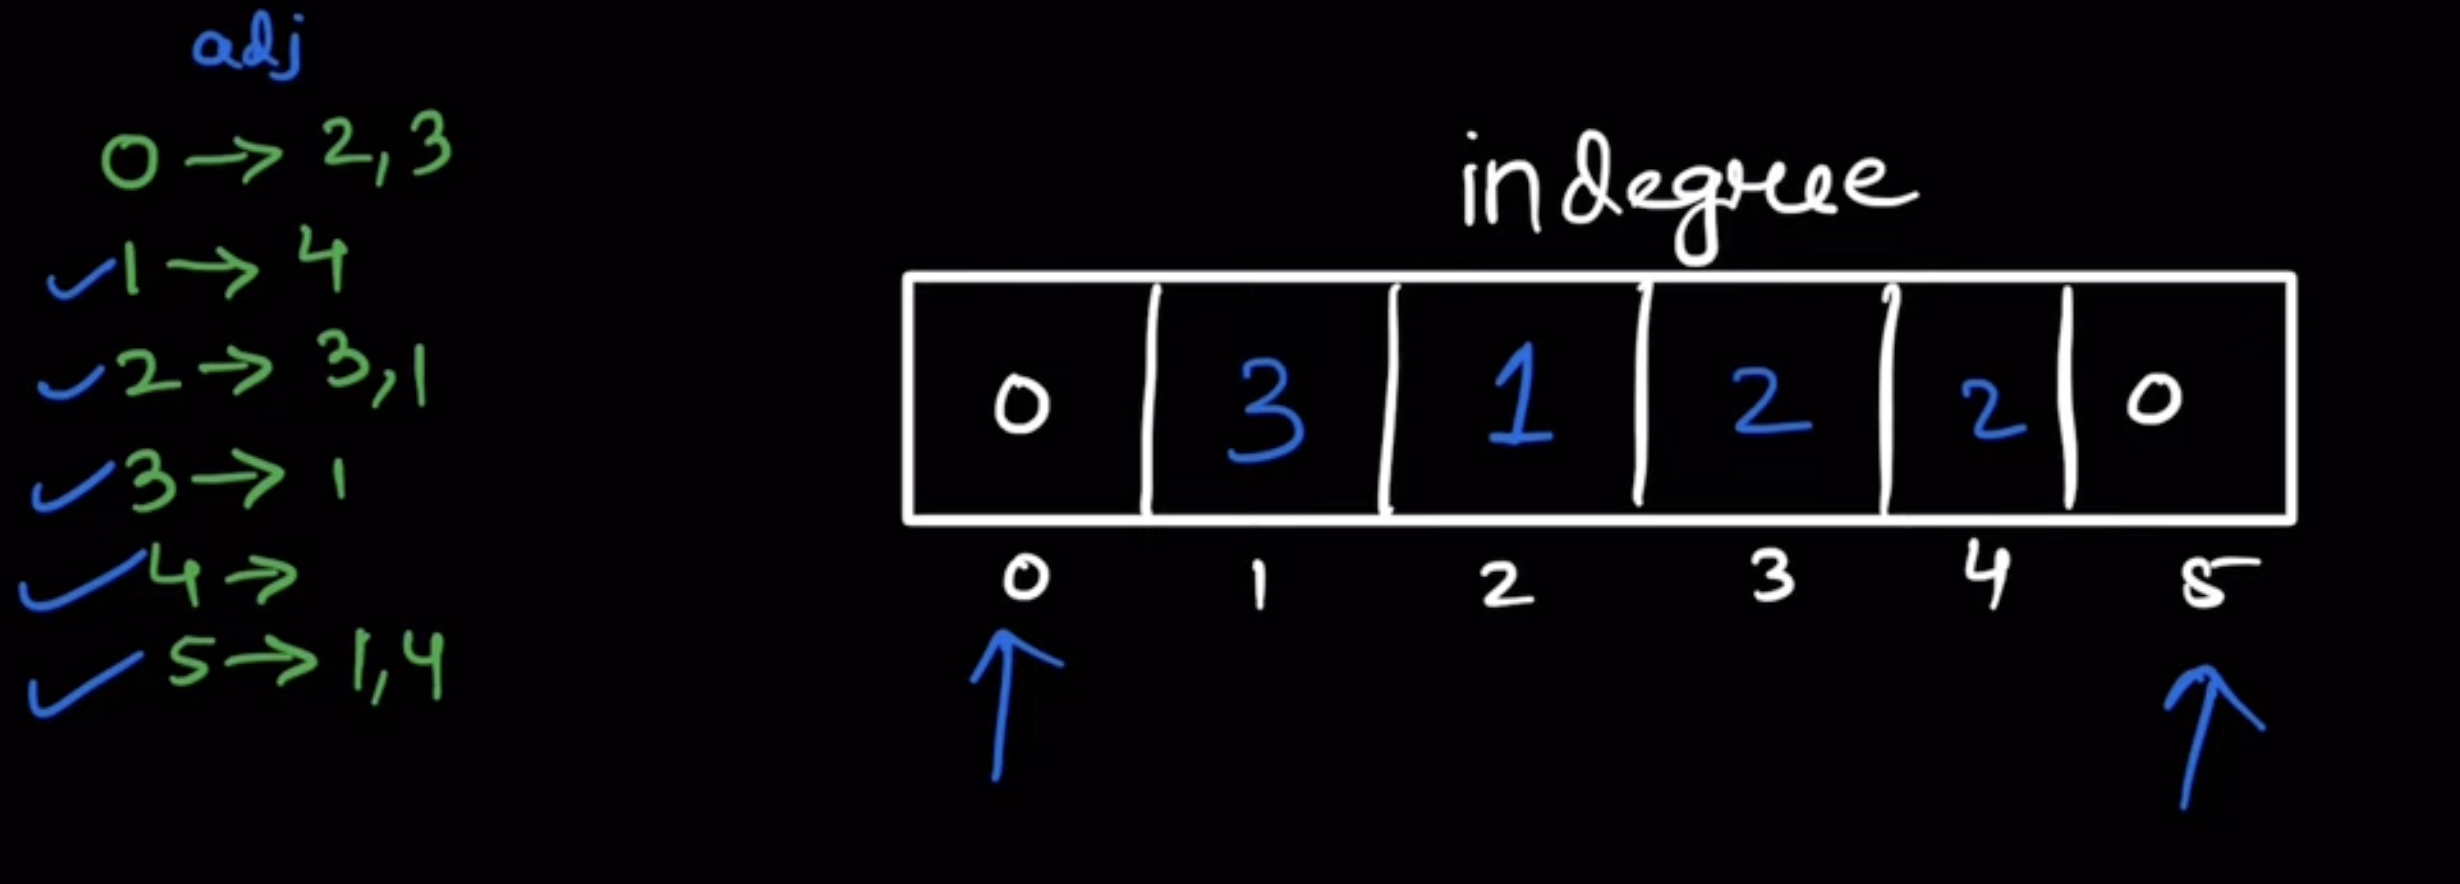 adj
0 → 2, 3
✓ 1 → 4
✓ 2 → 3, 1
✓ 3 → 1
✓ 4 →
✓ 5 → 1, 4
indegree
0 3 1 2 2 0
0 1 2 3 4 5